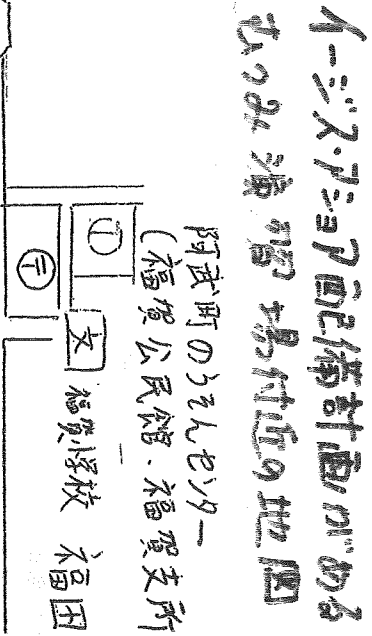 イージス・アショア配備計画がある
むつみ演習場付近の地図
阿武町のうそんセンター
(福賀公民館、福賀支所)
①
〒
文
福賀小学校
福田